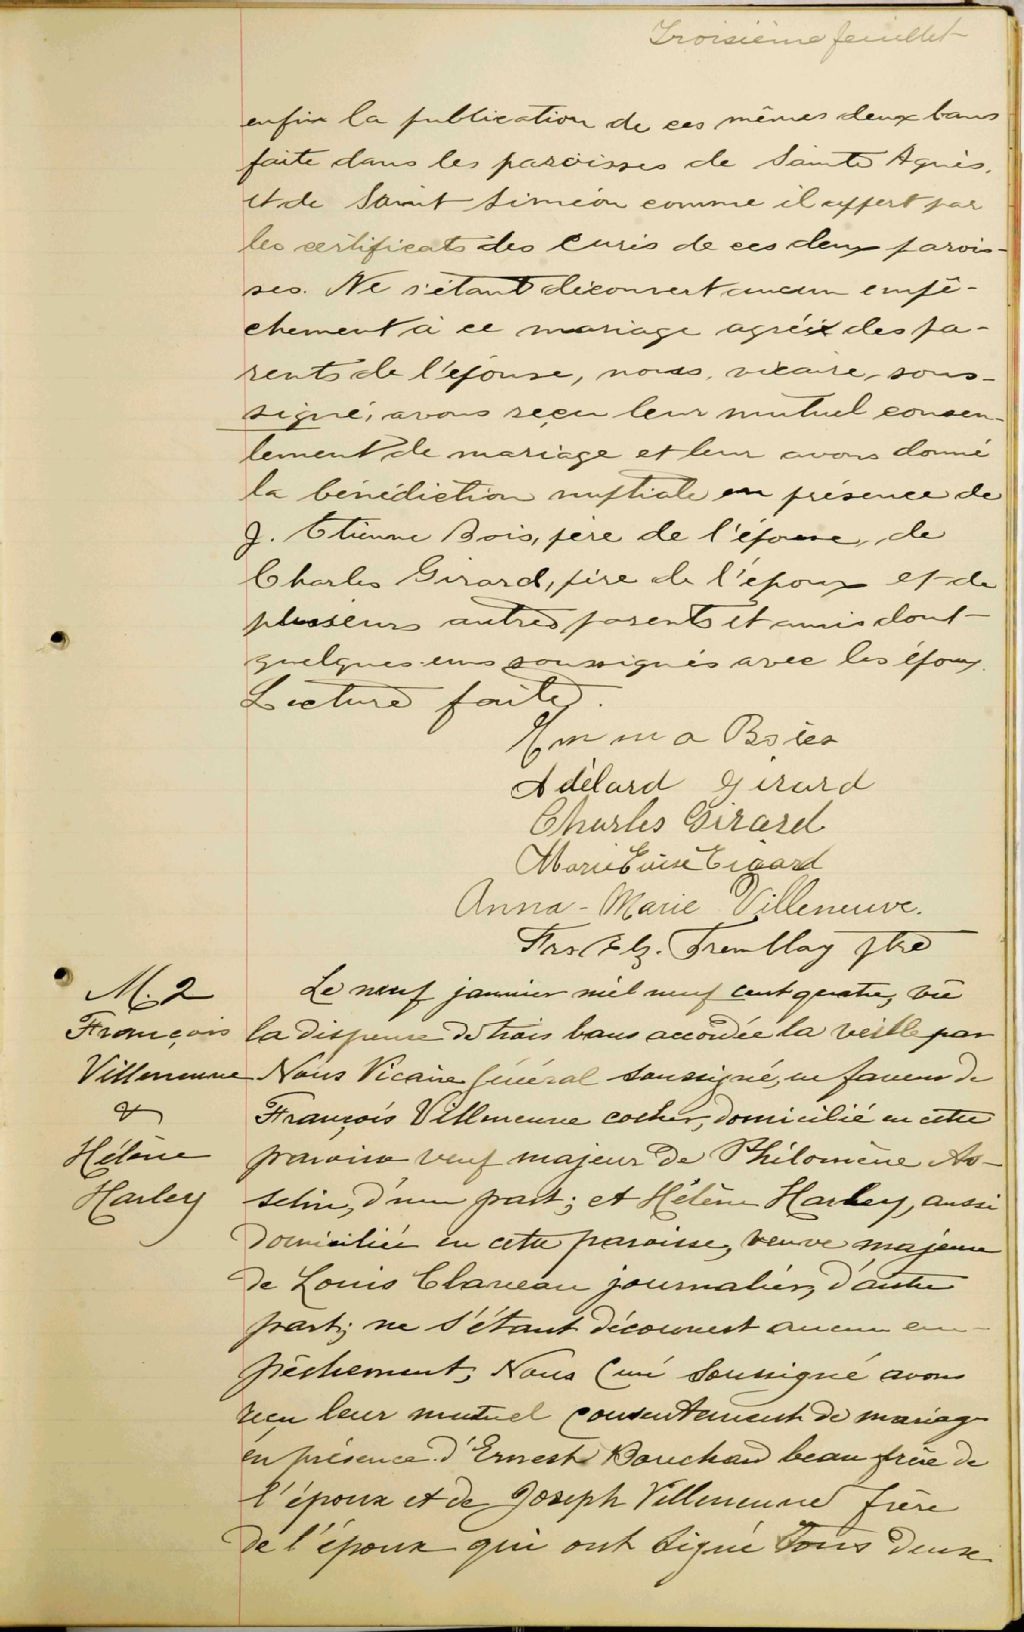 Troisième feuillet
enfin la publication de ces mêmes deux bans
faite dans les paroisses de Sainte Agnès,
et de Saint Siméon comme il appert par
les certificats des Curés de ces deux parois-
ses. Ne s'étant découvert aucun empê-
chement à ce mariage agréé des pa-
rents de l'épouse, nous, vicaire, sous-
signé, avons reçu leur mutuel consen-
tement de mariage et leur avons donné
la bénédiction nuptiale en présence de
J. Etienne Bois, père de l'épouse, de
Charles Girard, père de l'époux et de
plusieurs autres parents et amis dont
quelques-uns soussignés avec les époux.
Lecture faite.
Emma Boies
Adélard Girard
Charles Girard
Marie
Anna-Marie Villeneuve.
Frs Tremblay ptre
M. 2
François
Villeneuve
&
Hélène
Harley
Le neuf janvier mil neuf cent quatre, vu
la dispense de trois bans accordée la veille par
Nous Vicaire Général soussigné, en faveur de
François Villeneuve cocher, domicilié en cette
paroisse veuf majeur de Philomène As-
selin, d'une part; et Hélène Harley, aussi
domiciliée en cette paroisse, veuve majeure
de Louis Claveau journalier, d'autre
part; ne s'étant découvert aucun em-
pêchement, Nous Curé soussigné avons
reçu leur mutuel consentement de mariage
en présence d'Ernest Bouchard beau frère de
l'époux et de Joseph Villeneuve frère
de l'époux qui ont signé tous deux